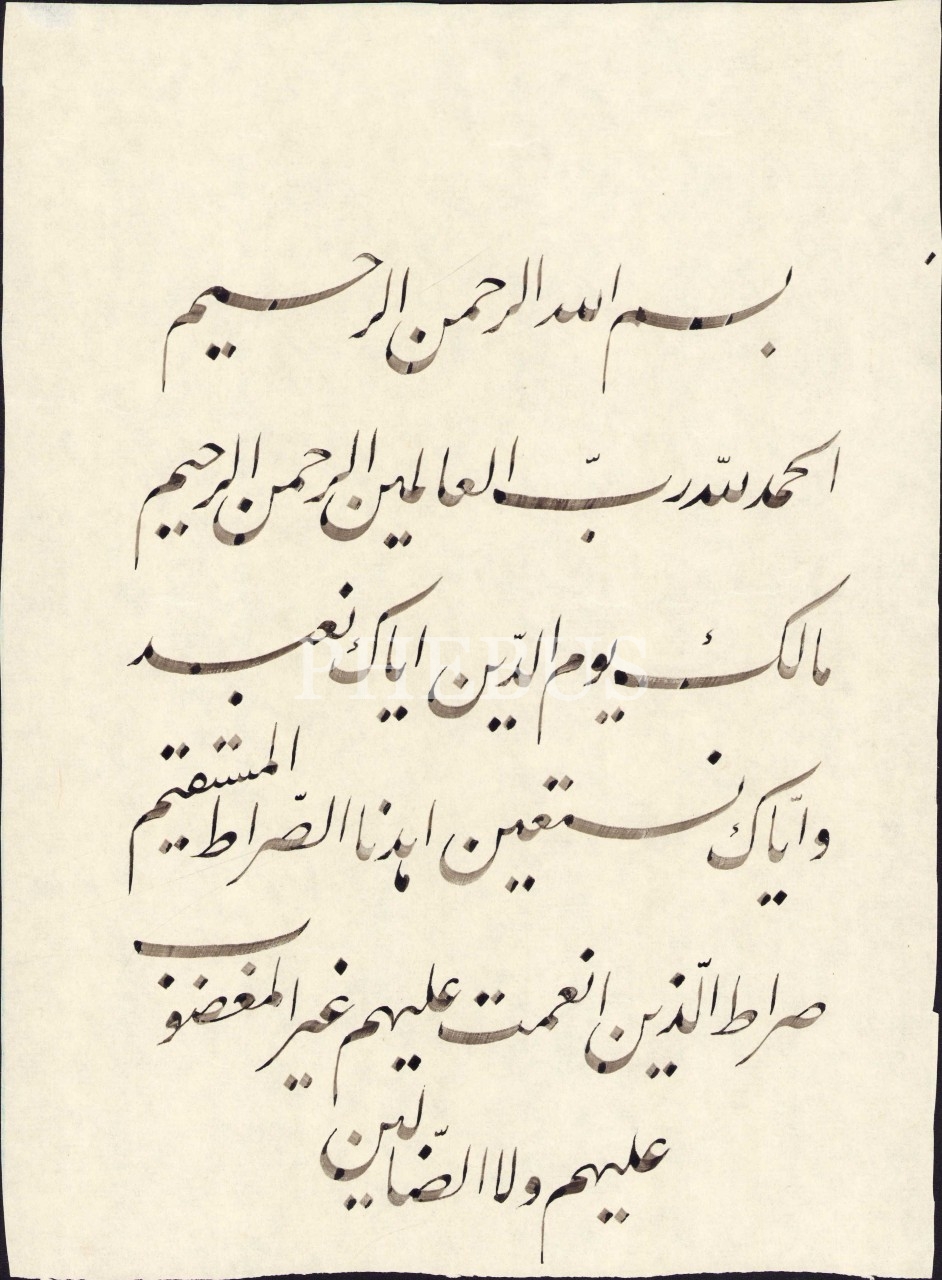 بسم الله الرحمن الرحیم
الحمد للّه ربّ العالمین الرحمن الرحیم
مالک یوم الدّین ایاک نعبد
وایّاک نستعین اهدنا الصّراط المستقیم
صراط الّذین انعمت علیهم غیر المغضوب
علیهم ولا الضّالین
PHEBUS